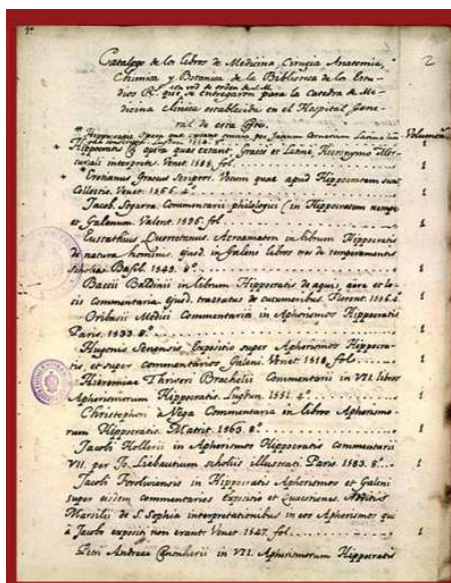 1º
2
Catalogo de los libros de Medicina, Cirugia Anatomia,
Chimica y Botanica de la Biblioteca de los Estu-
dios R.s que se entregaron para la Catedra de Me-
dicina Clinica establecida en el Hospital Gene-
ral de esta Corte.
Volumen.s
Hippocratis Opera quae extant omnia per Janum Cornarium Latina lin-
gua conscripta. Lugdun. 8º 1
+ Hippocratis opera quae extant, Graecè et Latinè, Hieronymo Mer-
curiali interprete. Venet. 1588. fol. 1
+ Erotianus Graecus Scriptor. Vocum quae apud Hippocratem sunt
Collectio. Venet. 1566. 4º 1
Jacob. Segarra Commentarii philologici (in Hippocratem nempe
et Galenum. Valent. 1596. fol. 1
Eustathius Quercetanus. Acroamaton in librum Hippocratis
de natura hominis, ejusd. in Galeni libros tres de temperamentis
Scholia. Basil. 1549. 8º 1
Baccii Baldinii in librum Hippocratis de aquis, aere et lo-
cis commentaria ejusd. tractatus de cucumeribus. Florent. 1586. 4º 1
Oribasii Medici Commentaria in Aphorismos Hippocratis
Paris. 1533. 8º 1
Hugonis Senensis Expositio super Aphorismos Hippocra-
tis, et super commentarios Galeni. Venet. 1518. fol. 1
Hieremiae Thriveri Brachelii Commentarii in VII. libros
Aphorismorum Hippocratis. Lugdun. 1551. 4º 1
Christophori à Vega Commentaria in libros Aphorismo-
rum Hippocratis. Matrit. 1563. 8º 1
Jacobi Hollerii in Aphorismos Hippocratis commentarii
VII. per Jo. Liebautium scholiis illustrati. Paris. 1583. 8º 1
Jacobi Forliviensis in Hippocratis Aphorismos et Galeni
super eisdem commentarios Expositio et Quaestiones. Additis
Marsilii de S. Sophia interpretationibus in eos Aphorismos qui
à Jacobo expositi non erant. Venet. 1547. fol. 1
Petri Andreae Canonherii in VII. Aphorismorum Hippocratis